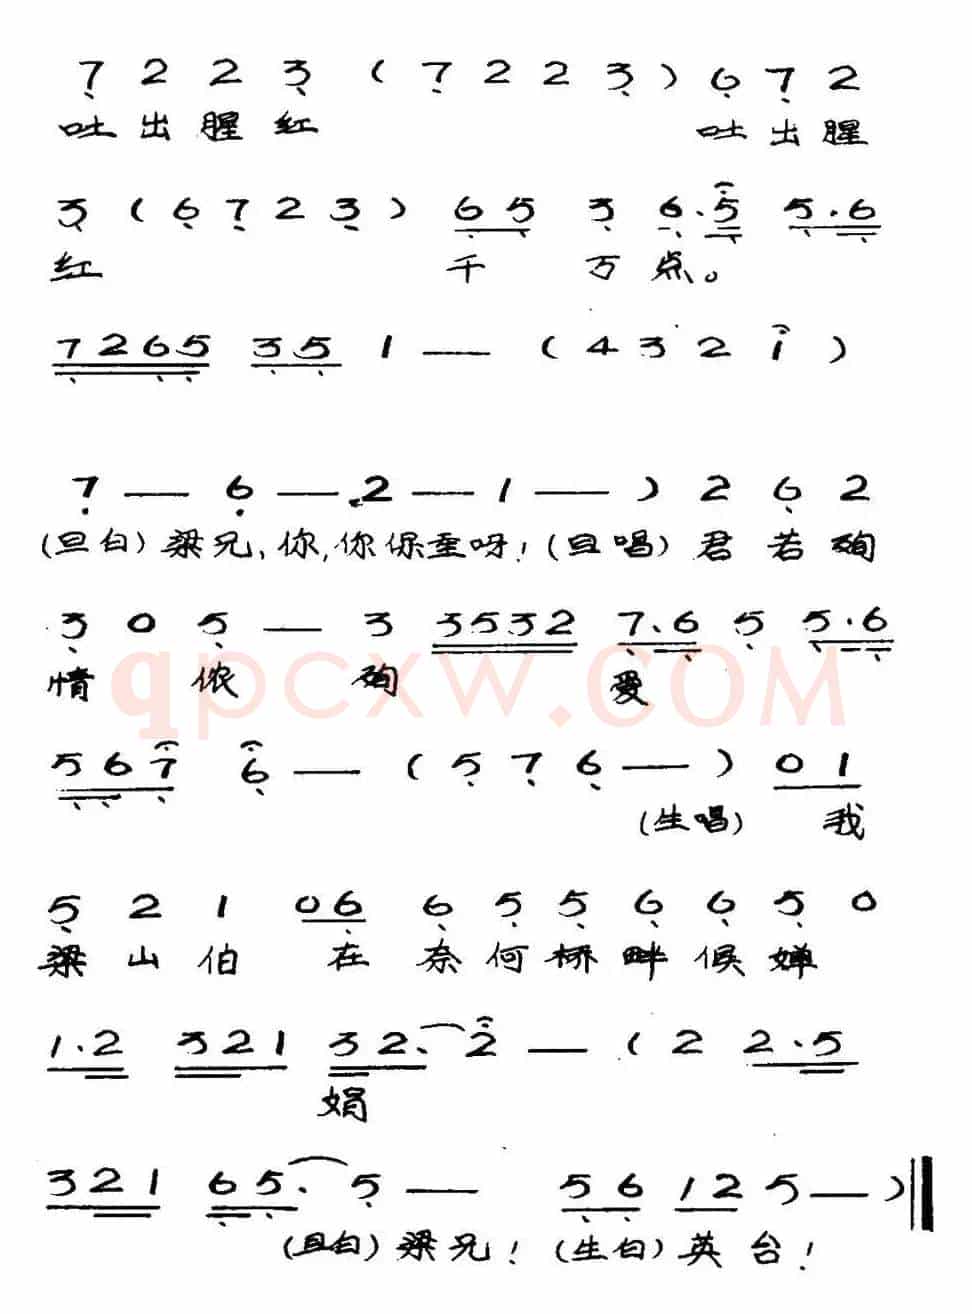 7 2 2 3 ( 7 2 2 3 ) 6 7 2
吐出腥红 吐出腥
3 ( 6 7 2 3 ) 6 5 3 6.5 5.6
红 千万点。
7265 35 1 — ( 4 3 2 i )
7 — 6 — 2 — 1 — ) 2 6 2
(旦白) 梁兄,你,你保重呀! (旦唱) 君若殉
3 0 5 — 3 3532 7.6 5 5.6
情 侬 殉 爱
qpcxw.COM
567 6 — ( 5 7 6 — ) 0 1
(生唱) 我
5 2 1 06 6 5 5 6 6 5 0
梁山伯 在奈何桥畔候婵
1.2 321 32. 2 — ( 2 2.5
娟
321 65. 5 — 56 12 5 — )
(旦白) 梁兄! (生白) 英台!